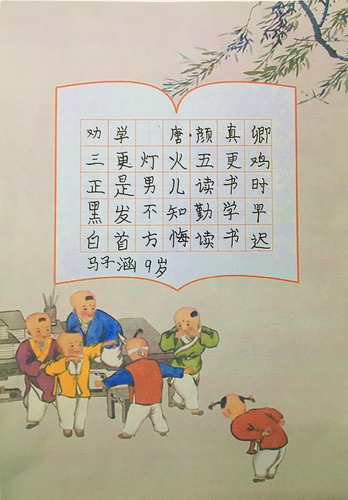 劝学 唐·颜真卿
三更灯火五更鸡
正是男儿读书时
黑发不知勤学早
白首方悔读书迟
马子涵 9岁